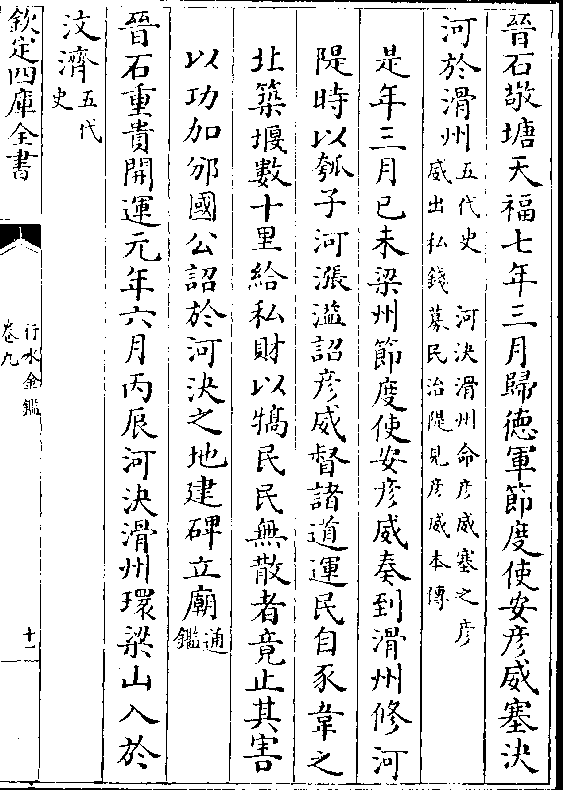 晉石敬塘天福七年三月歸德軍節度使安彥威塞決
河於滑州
五代史 河決滑州命彥威塞之彥
威出私錢募民治隄見彥威本傳
是年三月已未梁州節度使安彥威奏到滑州修河
隄時以瓠子河漲溢詔彥威督諸道運民自豕韋之
北築堰數十里給私財以犒民民無散者竟止其害
以功加邠國公詔於河決之地建碑立廟
通
鑑
晉石重貴開運元年六月丙辰河決滑州環梁山入於
汶濟
五代
史
欽定四庫全書
行水金鑑
卷九
十一